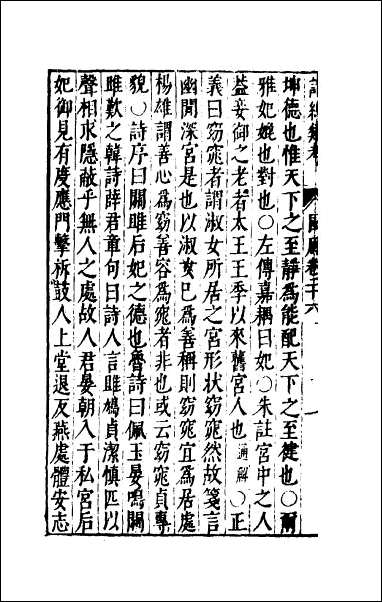 坤德也惟天下之至靜爲能配天下之至健也〇爾
雅妃媲也對也〇左傳嘉耦曰妃〇朱註宮中之人
益妾御之老者太王王季以來舊宮人也通解〇正
義曰窈窕者謂淑女所居之宮形状窈窕然故箋言
幽閒深宮是也以淑女已爲善稱則窈窕宜爲居處
楊雄謂善心爲窈善容爲窕者非也或云窈窕貞專
貌〇詩序曰關雎后妃之德也魯詩曰佩玉晏鳴關
雎歎之韓詩薛君章句曰詩人言雎鳩貞潔慎匹以
聲相求隱蔽乎無人之處故人君晏朝入于私宮后
妃御見有度應門擊柝鼓人上堂退反燕處體安志